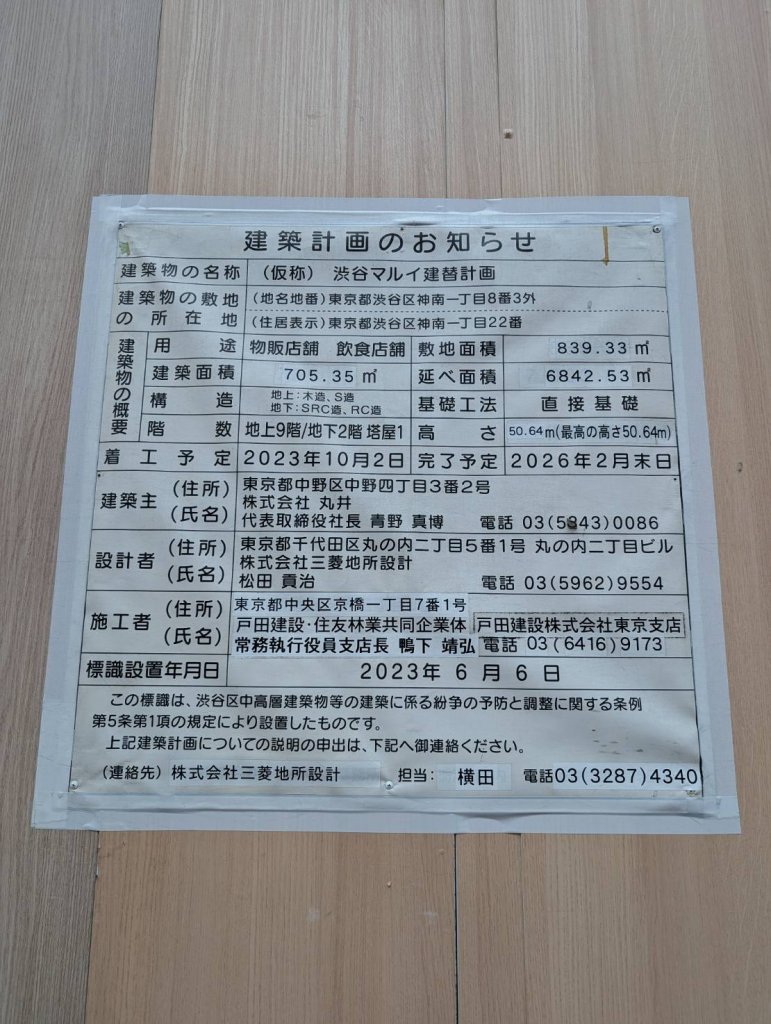 建築計画のお知らせ
建築物の名称 (仮称) 渋谷マルイ建替計画
建築物の敷地の所在地 (地名地番)東京都渋谷区神南一丁目8番3外
(住居表示)東京都渋谷区神南一丁目22番
建築物の概要
用途 物販店舗 飲食店舗 敷地面積 839.33㎡
建築面積 705.35㎡ 延べ面積 6842.53㎡
構造 地上:木造、S造
地下:SRC造、RC造 基礎工法 直接基礎
階数 地上9階/地下2階 塔屋1 高さ 50.64m(最高の高さ50.64m)
着工予定 2023年10月2日 完了予定 2026年2月末日
建築主 (住所) 東京都中野区中野四丁目3番2号
(氏名) 株式会社 丸井
代表取締役社長 青野 真博 電話 03(5343)0086
設計者 (住所) 東京都千代田区丸の内二丁目5番1号 丸の内二丁目ビル
(氏名) 株式会社三菱地所設計
松田 貢治 電話 03(5962)9554
施工者 (住所) 東京都中央区京橋一丁目7番1号
(氏名) 戸田建設・住友林業共同企業体 戸田建設株式会社東京支店
常務執行役員支店長 鴨下 靖弘 電話 03(6416)9173
標識設置年月日 2023年6月6日
この標識は、渋谷区中高層建築物等の建築に係る紛争の予防と調整に関する条例
第5条第1項の規定により設置したものです。
上記建築計画についての説明の申出は、下記へ御連絡ください。
(連絡先) 株式会社三菱地所設計 担当: 横田 電話03(3287)4340